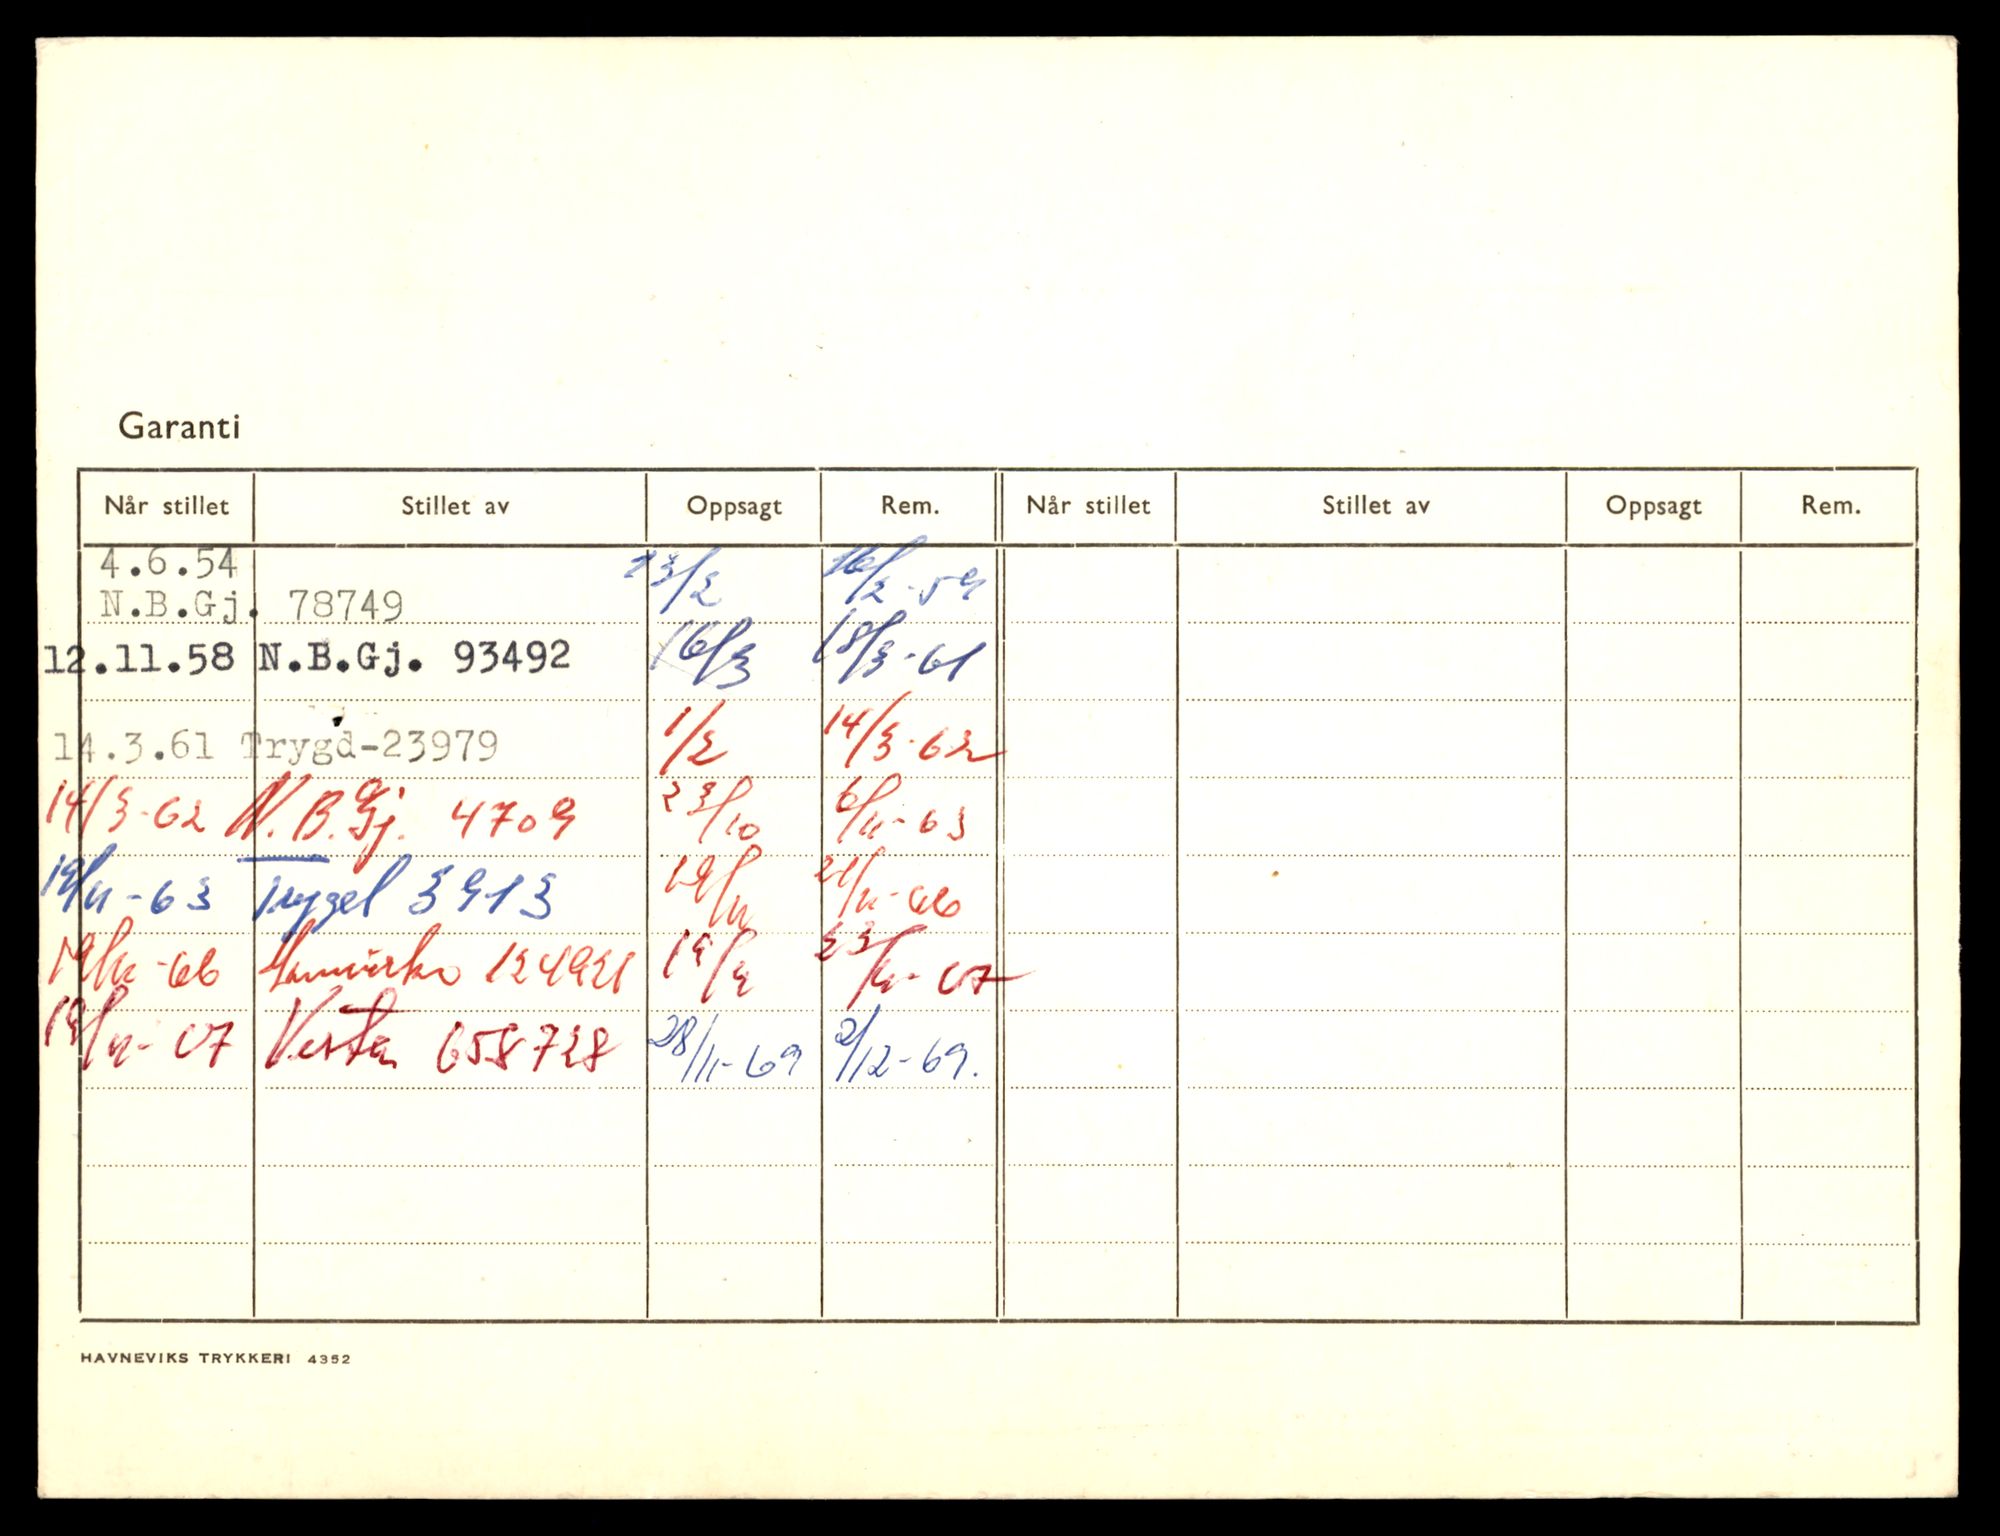 Garanti
Når stillet Stillet av Oppsagt Rem. Når stillet Stillet av Oppsagt Rem.
4.6.54 13/2 16/2-59
N.B.Gj. 78749
12.11.58 N.B.Gj. 93492 16/3 18/3-61
14.3.61 Trygd-23979 1/2 14/3-62
14/3-62 N.B.Gj. 4709 23/10 6/11-63
19/11-63 Trygd 3913 19/11 21/11-66
19/11-66 Samvirke 124921 23/11-67
19/11-67 Vesta 658728 28/11-69 2/12-69.
HAVNEVIKS TRYKKERI 4352